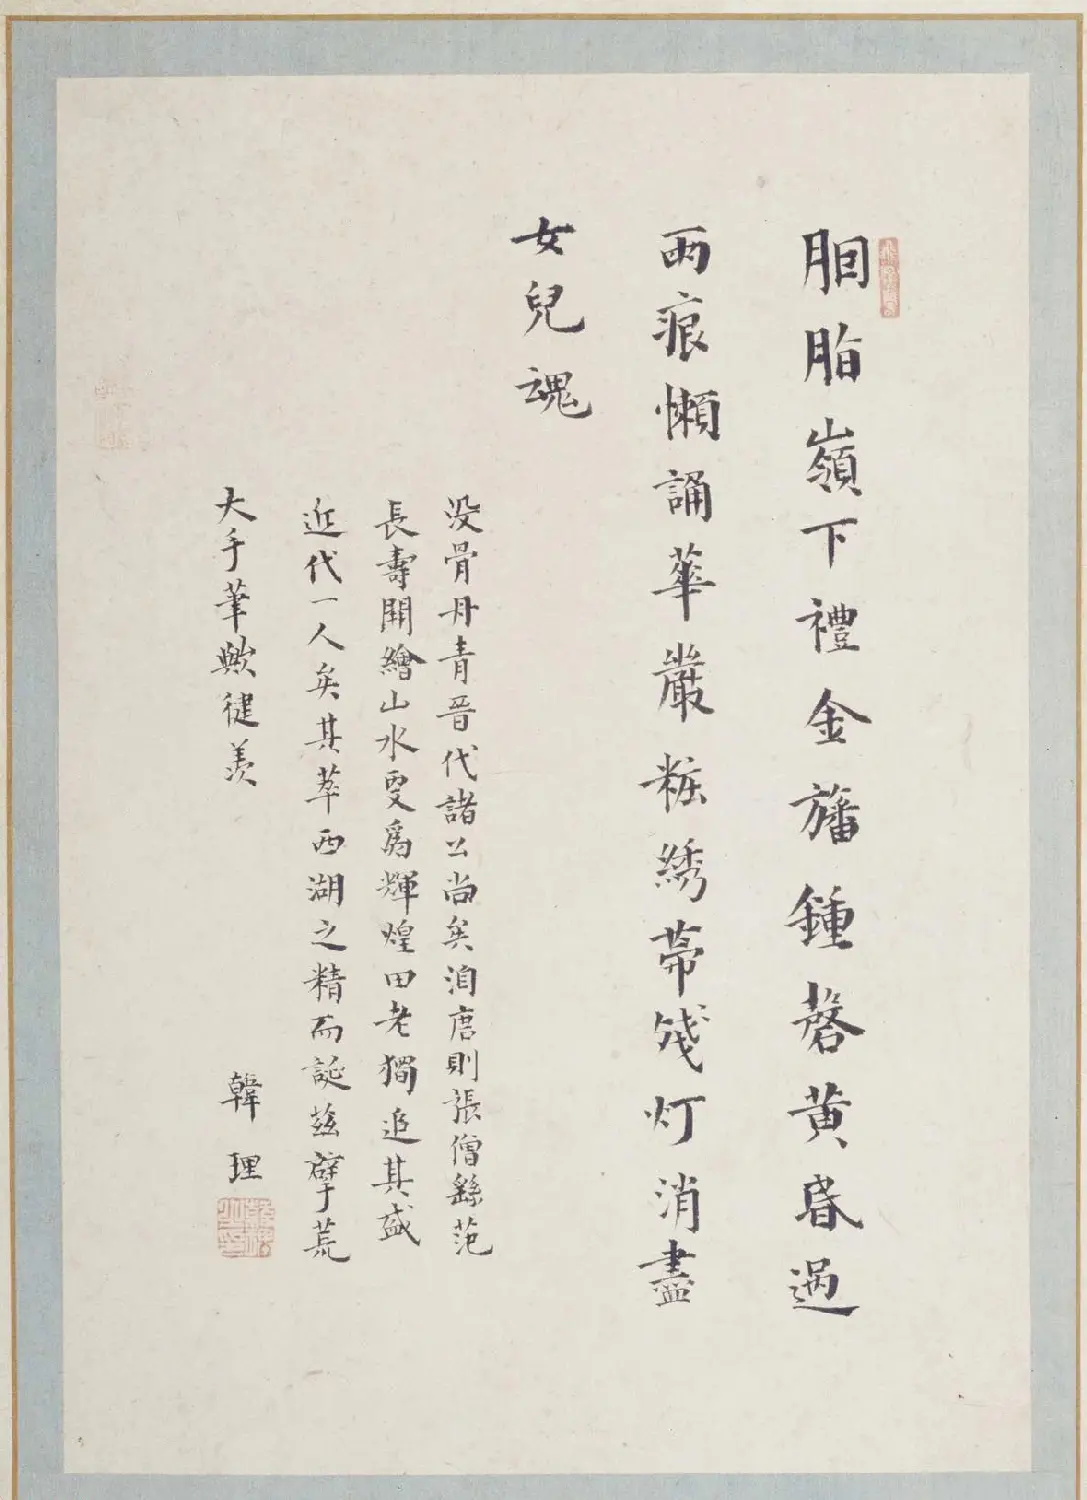 胭脂嶺下禮金旛鍾磬黄昏過
雨痕懶誦華嚴粧綉蒂残灯消盡
女兒魂
没骨丹青晋代諸公尚矣洎唐則張僧繇范
長壽開繪山水更為輝煌田老獨追其盛
近代一人矣其萃西湖之精而誕兹擘荒
大手筆歟健羡
韓理